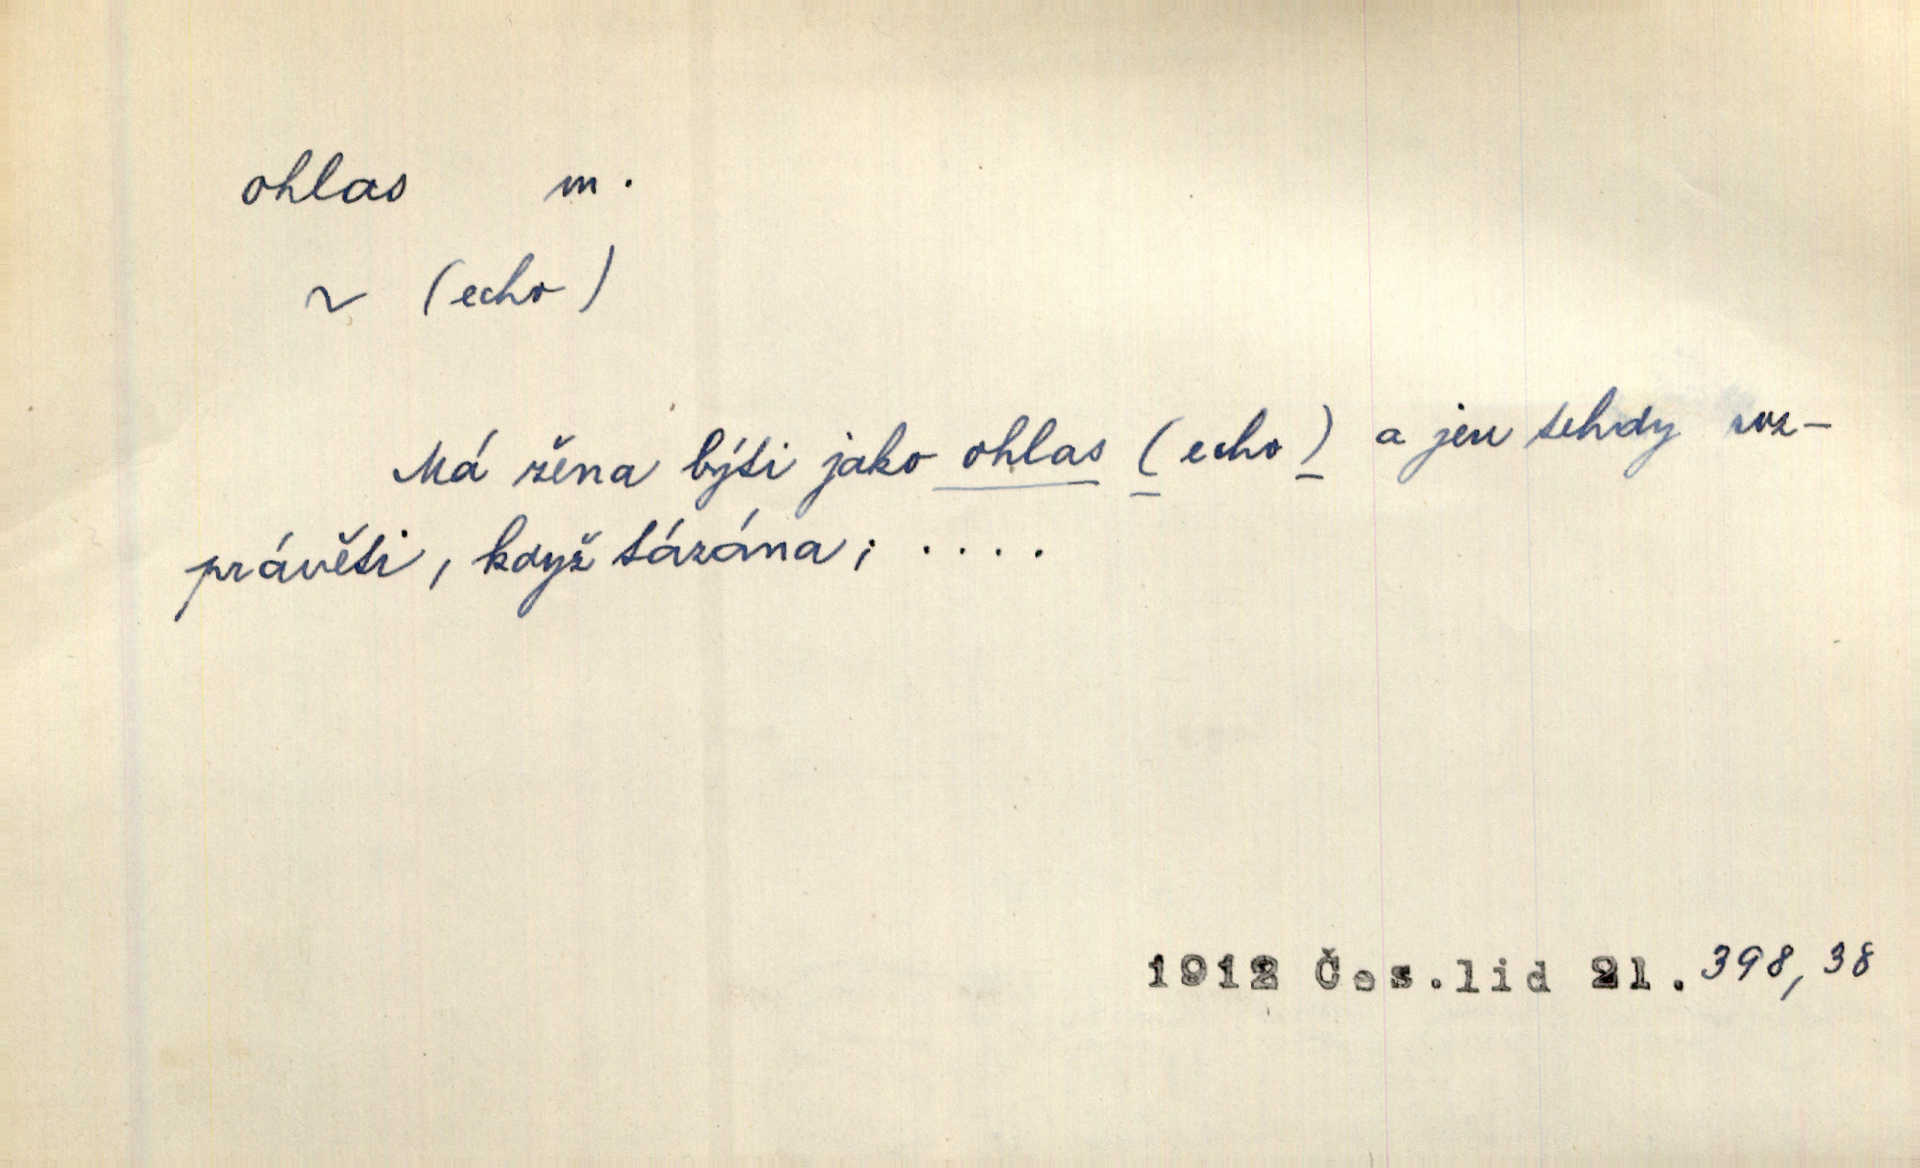 ohlas m.
~ (echo)
Má žena býti jako ohlas (echo) a jen tehdy roz-
právěti, když tázána; ....
1912 Čes.lid 21. 398, 38